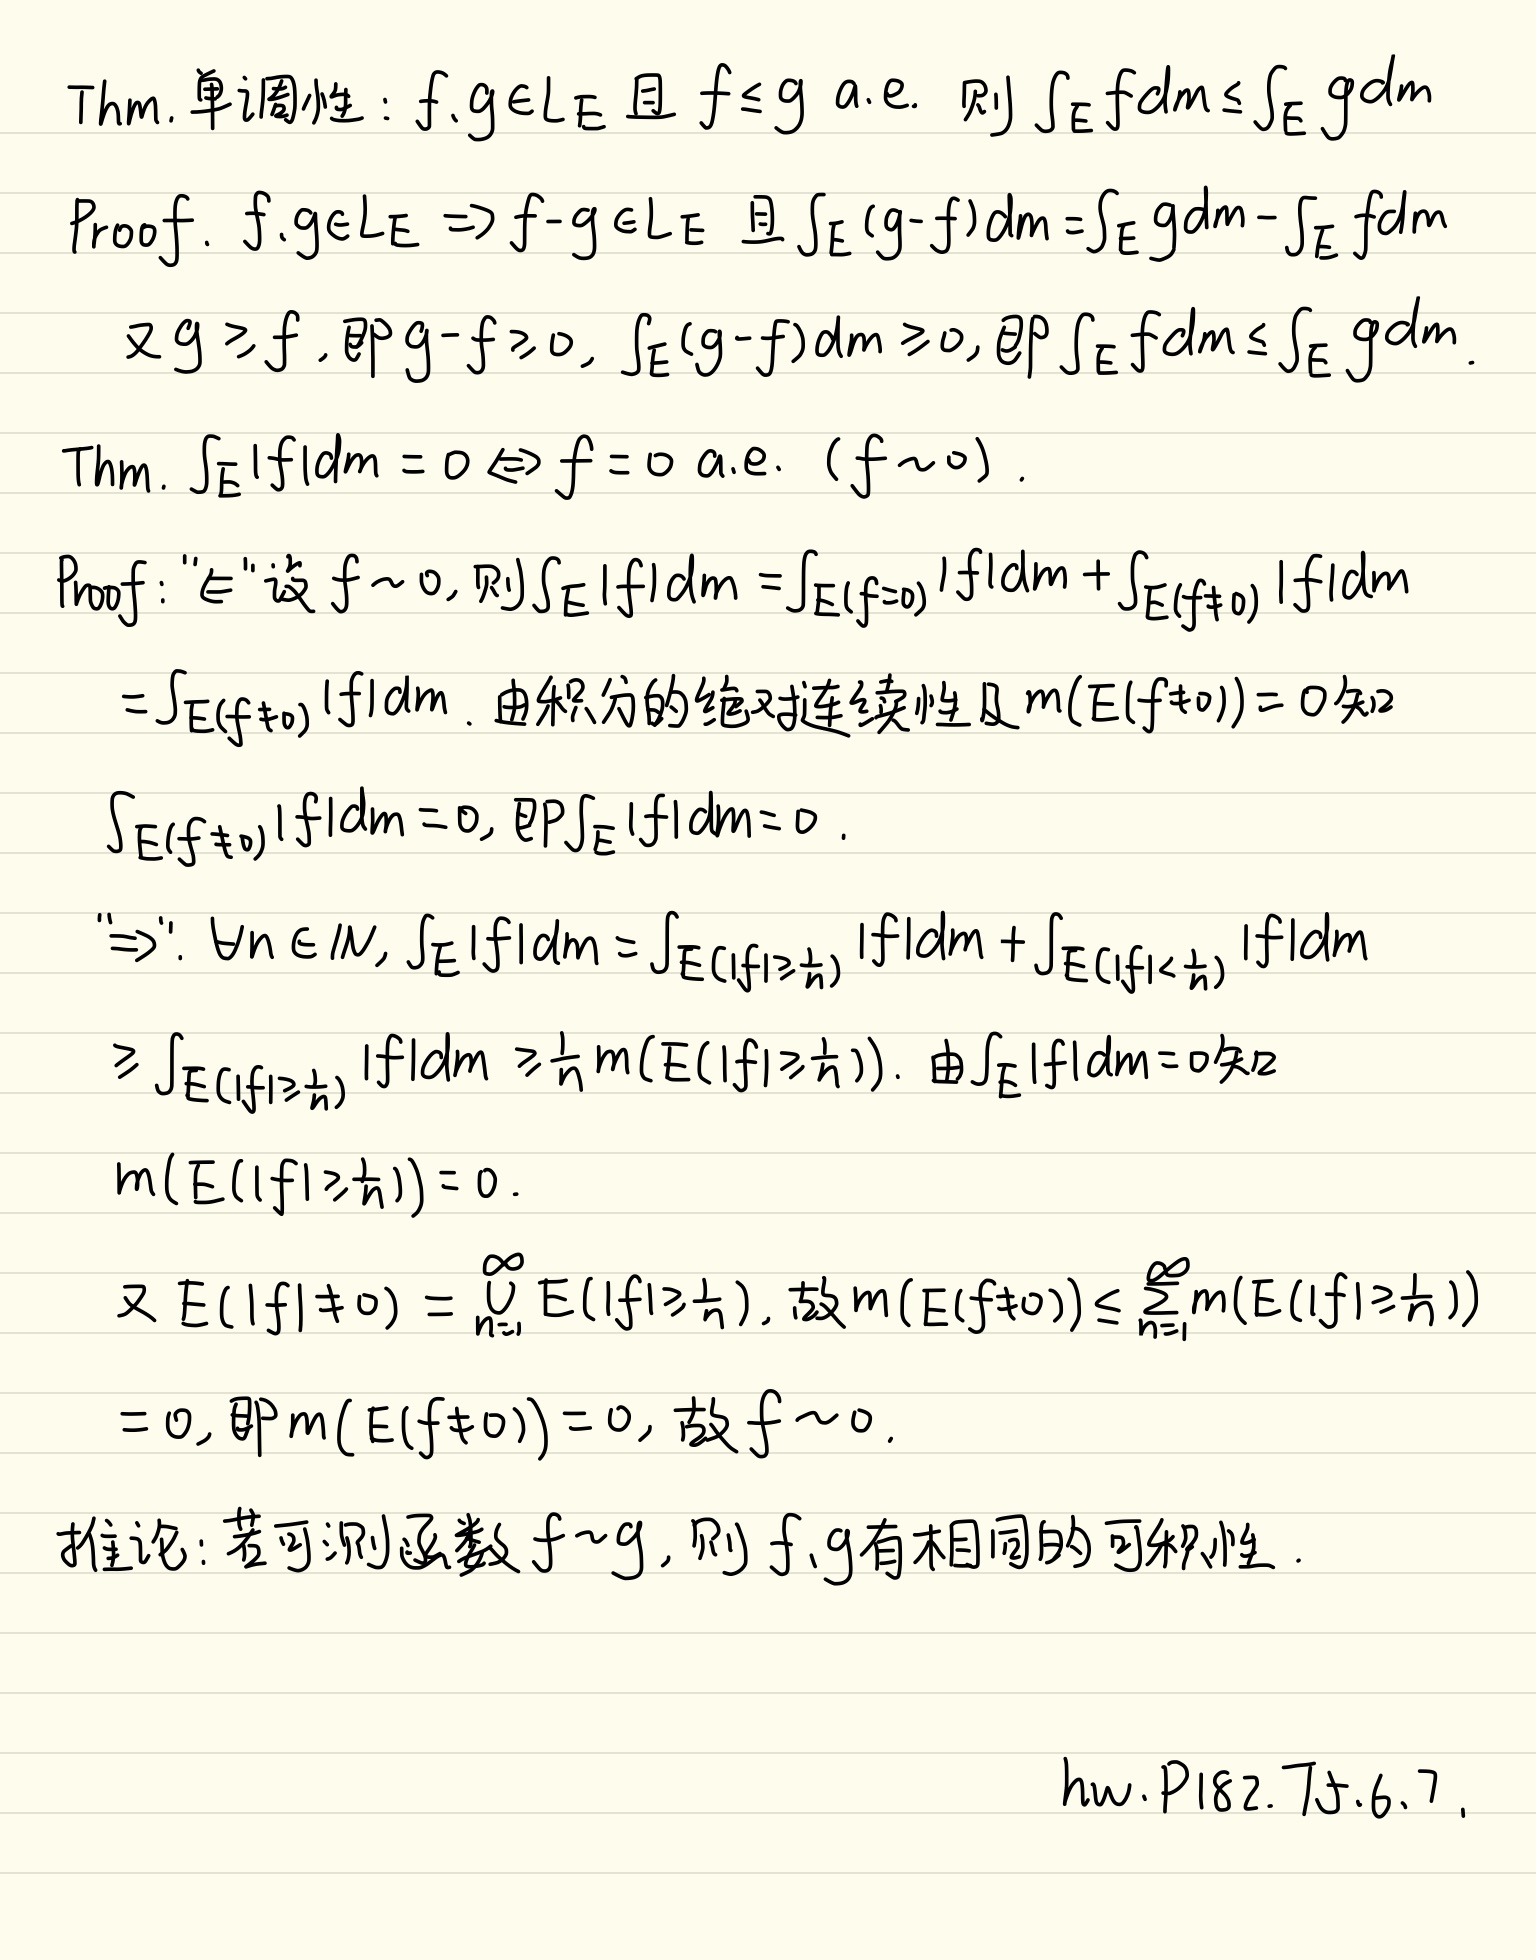 Thm. 单调性: f.g∈L_E 且 f≤g a.e. 则 ∫_E fdm≤∫_E gdm
Proof. f.g∈L_E ⇒ f-g∈L_E 且 ∫_E (g-f)dm=∫_E gdm-∫_E fdm
又 g≥f, 即 g-f≥0, ∫_E (g-f)dm≥0, 即 ∫_E fdm≤∫_E gdm.
Thm. ∫_E |f|dm=0 ⇔ f=0 a.e. (f~0).
Proof: "⇐" 设 f~0, 则 ∫_E |f|dm=∫_{E(f=0)} |f|dm+∫_{E(f≠0)} |f|dm
=∫_{E(f≠0)} |f|dm. 由积分的绝对连续性及 m(E(f≠0))=0知
∫_{E(f≠0)} |f|dm=0, 即 ∫_E |f|dm=0.
"⇒". ∀n∈ℕ, ∫_E |f|dm=∫_{E(|f|≥1/n)} |f|dm+∫_{E(|f|<1/n)} |f|dm
≥∫_{E(|f|≥1/n)} |f|dm ≥ 1/n m(E(|f|≥1/n)). 由 ∫_E |f|dm=0知
m(E(|f|≥1/n))=0.
又 E(|f|≠0) = ⋃_{n=1}^∞ E(|f|≥1/n), 故 m(E(f≠0))≤∑_{n=1}^∞ m(E(|f|≥1/n))
=0, 即 m(E(f≠0))=0, 故 f~0.
推论: 若可测函数 f~g, 则 f.g有相同的可积性.
hw. P182. T5.6.7.